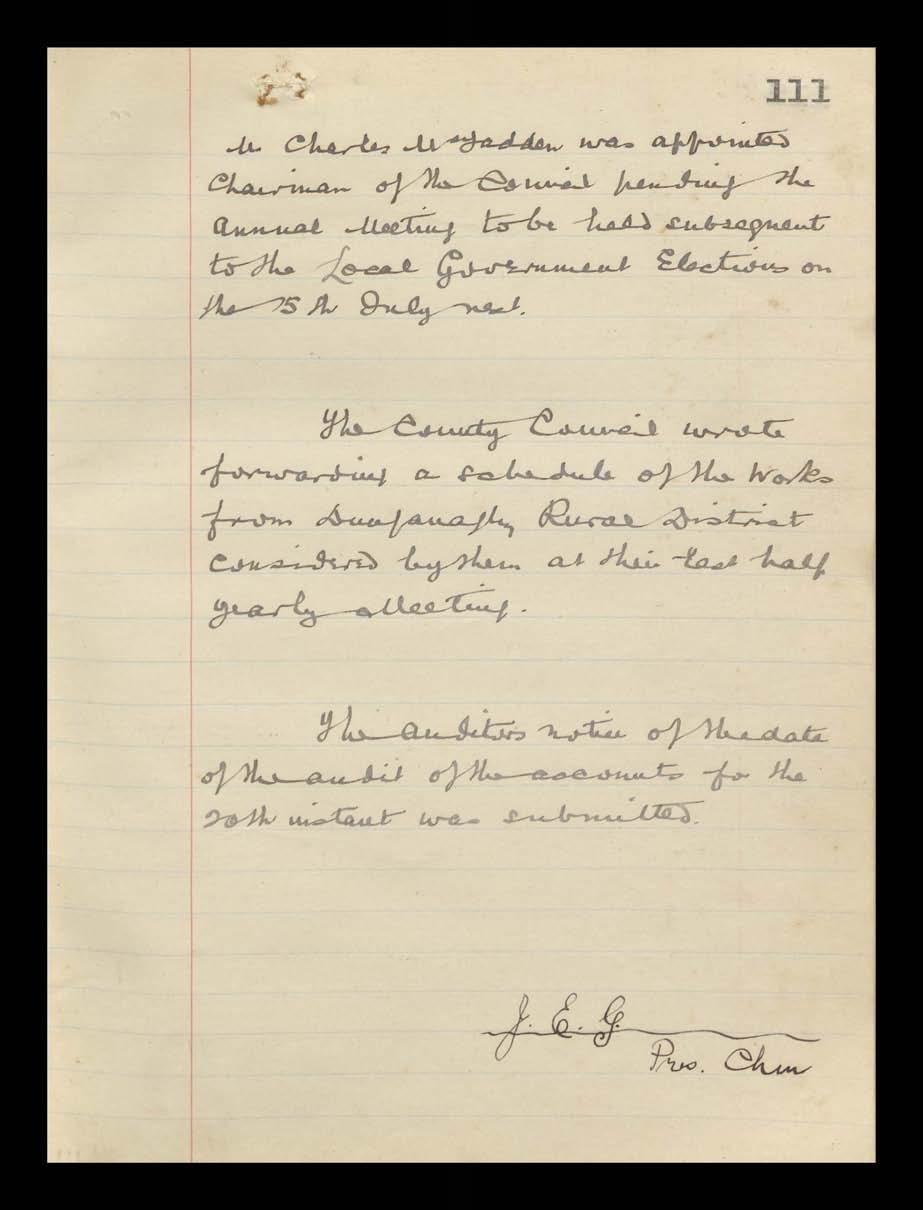 111
Mr Charles McFadden was appointed
Chairman of the Council pending the
Annual Meeting to be held subsequent
to the Local Government Elections on
the 15th July next.
The County Council wrote
forwarding a schedule of the Works
from Dunfanaghy Rural District
considered by them at their last half
yearly Meeting.
The Auditors notice of the date
of the audit of the accounts for the
20th instant was submitted.
J. E. G.
Pres. Chm